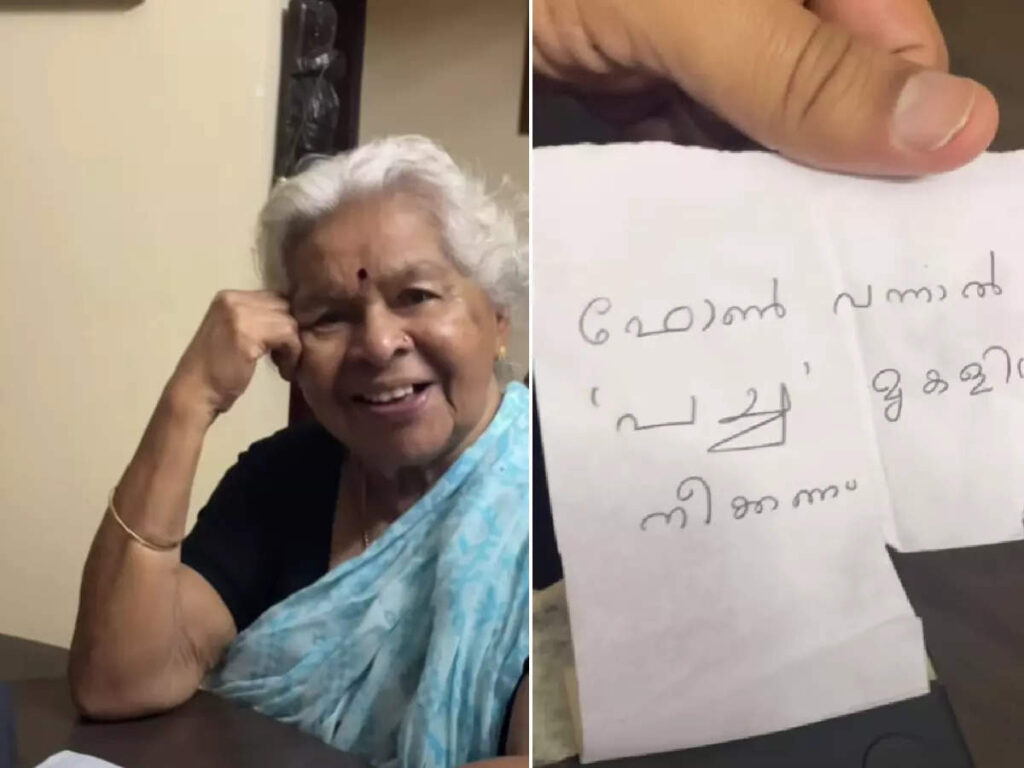 ഫോൺ വന്നാൽ
'പച്ച' മുകളി
നീക്കണം